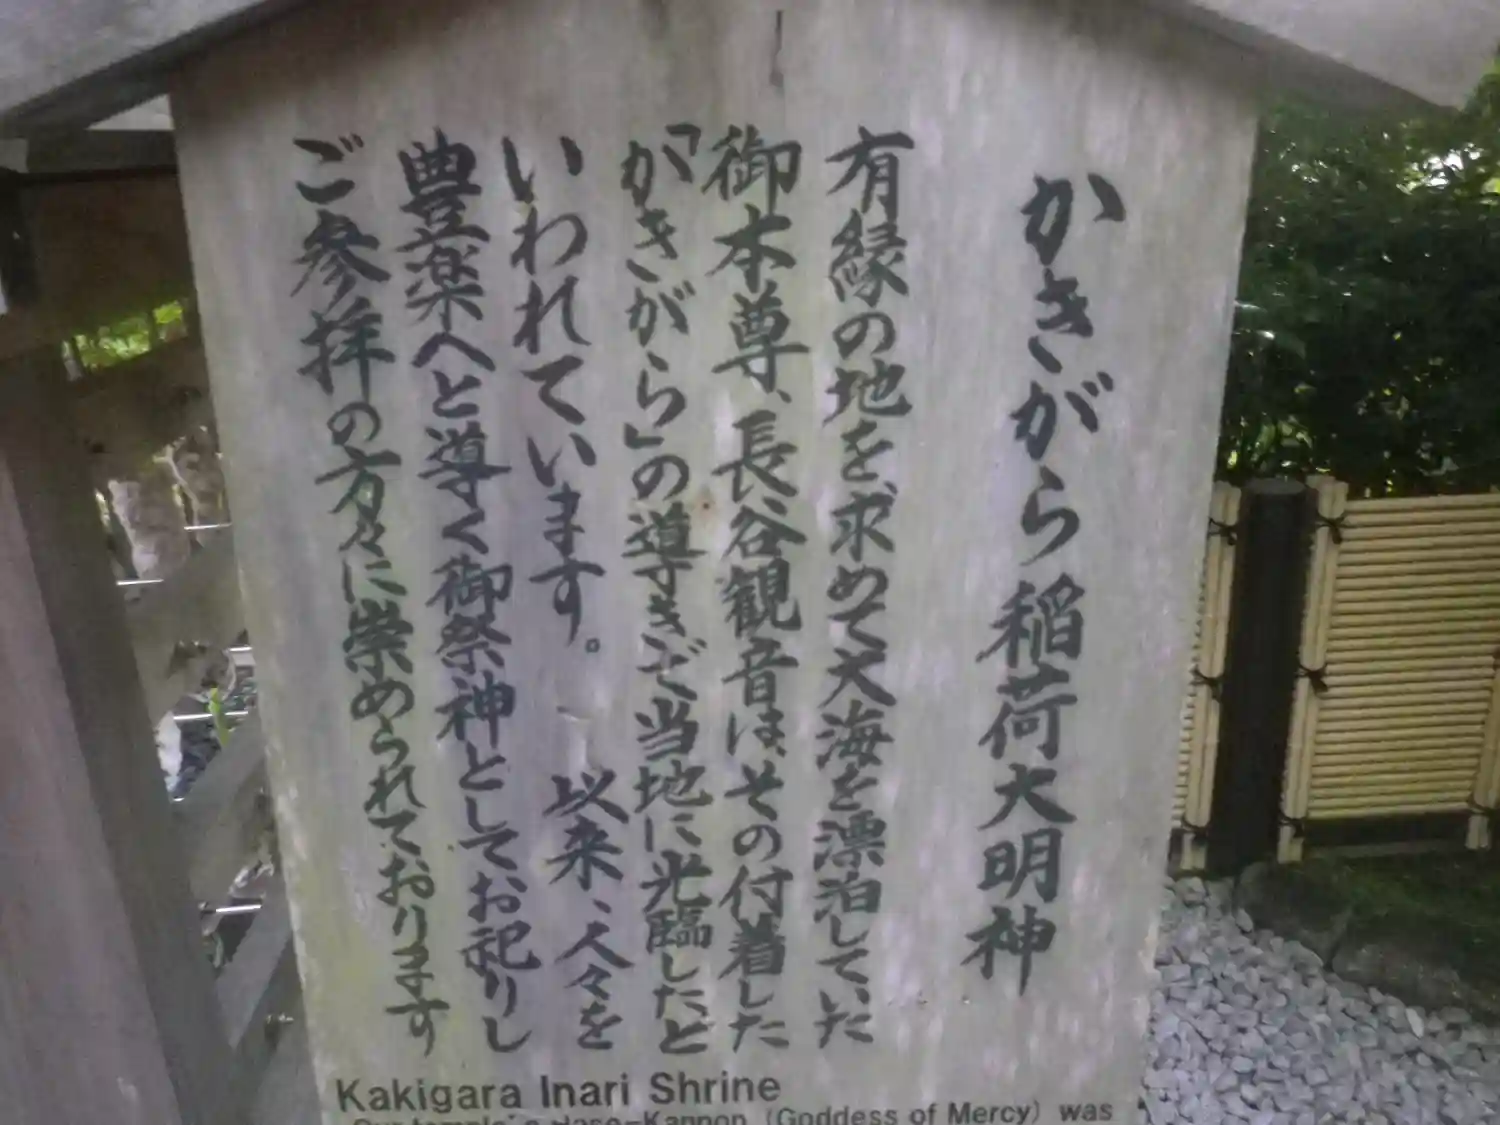 かきがら稲荷大明神
有縁の地を、求めて大海を漂泊していた
御本尊、長谷観音は、その付着した
「かきがら」の導きで当地に光臨したと
いわれています。 以来、人々を
豊楽へと導く御祭神としてお祀りし
ご参拝の方々に崇められております
Kakigara Inari Shrine
Our temple's Hase-Kannon (Goddess of Mercy) was